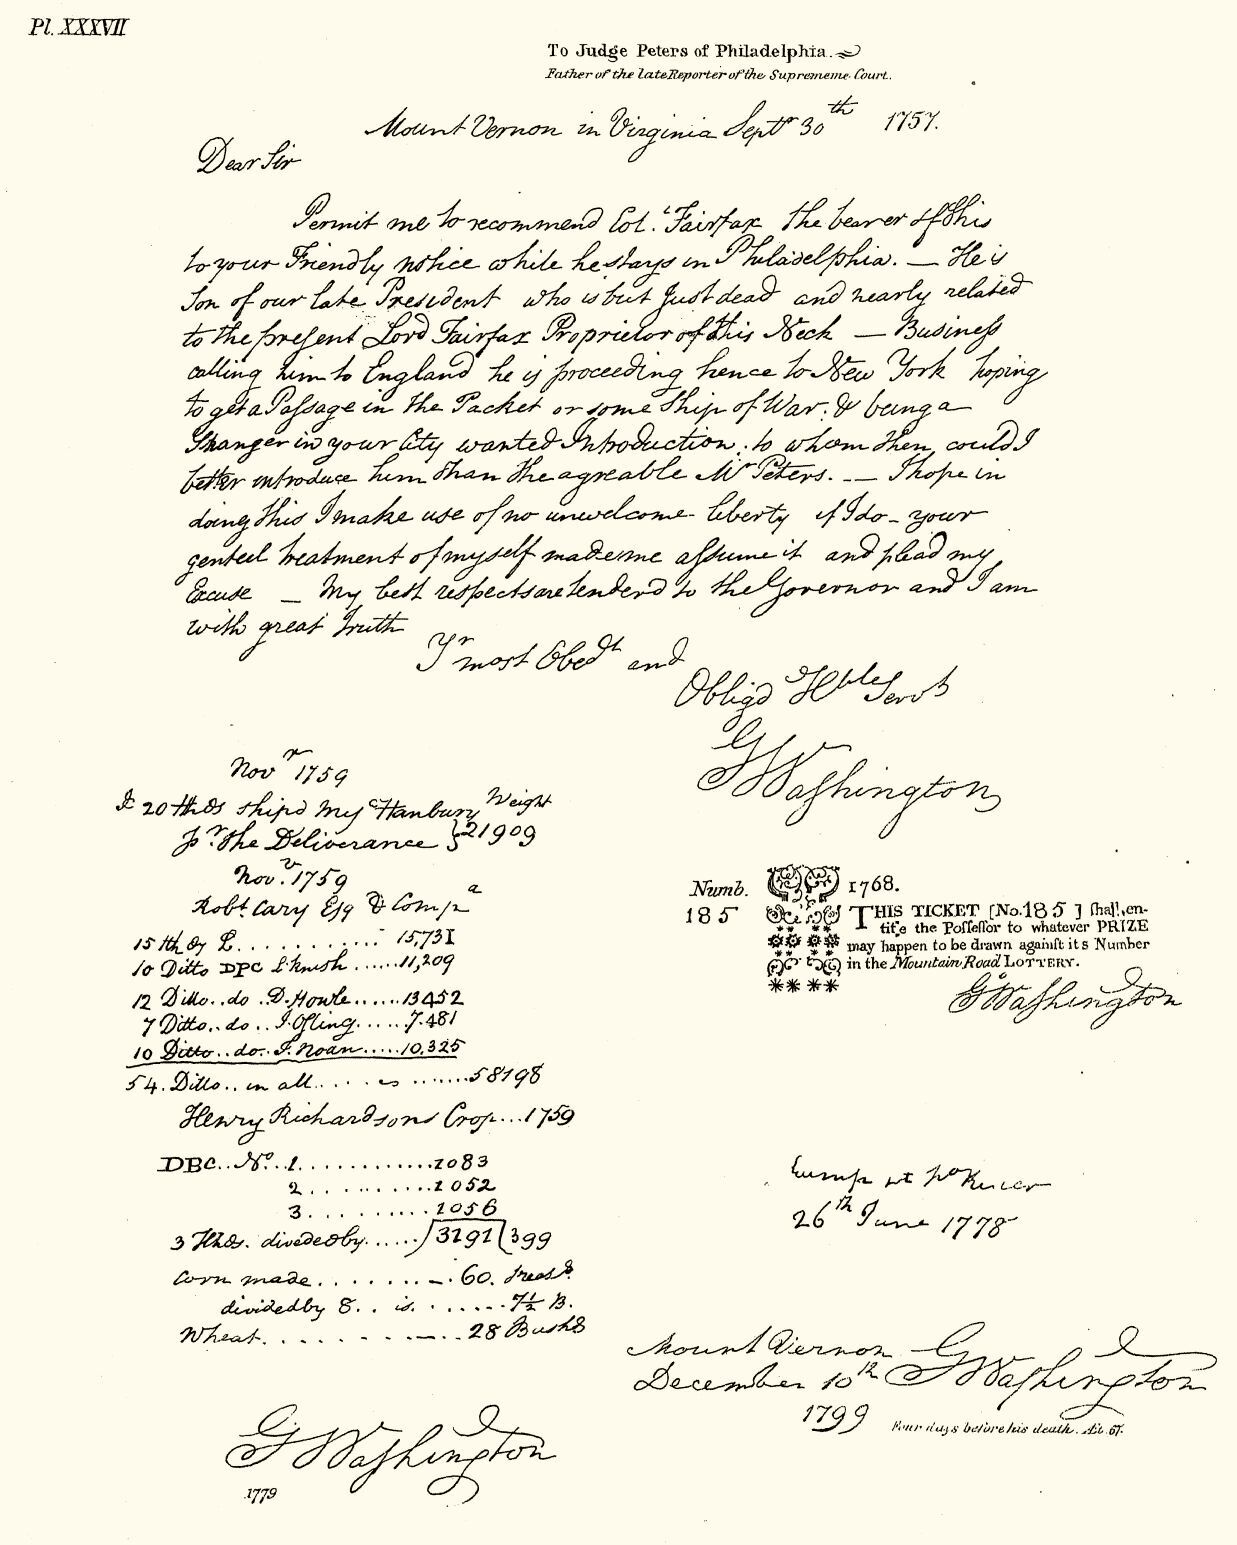 Pl. XXXVII
To Judge Peters of Philadelphia.
Father of the late Reporter of the Suprememe Court.
Mount Vernon in Virginia Septr 30th 1757.
Dear Sir
Permit me to recommend Col. Fairfax the bearer of this
to your Friendly notice while he stays in Philadelphia. — He is
Son of our late President who is but just dead and nearly related
to the present Lord Fairfax Proprietor of this Neck — Business
calling him to England he is proceeding hence to New York hoping
to get a Passage in the Packet or some Ship of War. & being a
Stranger in your City wanted Introduction; to whom then could I
better introduce him than the agreable Mr Peters. -- — I hope in
doing this I make use of no unwelcome liberty if I do - your
genteel treatment of myself made me assume it and plead my
Excuse — My best respects are tenderd to the Governor and I am
with great truth
Yr most Obedt and
Obligd Hble Servt
GWashington
Novr 1759
20 Hhds shipd Hanbury Weight
Pr. the Deliverance } 21909
Novr. 1759
Robt Cary Esq & Compa
15 Hhd by L. .......... 15,731
10 Ditto DPC ......11,209
12 Ditto..do .D. Howle......13452
7 Ditto..do.. I. Ofling.....7.481
10 Ditto..do.. F. Noan.....10,325
54. Ditto.. in all.... is .......58198
Henry Richardsons Crop...1759
DBC..No..1............1083
2...........1052
3..........1056
3 Hhds. divided by......3191 399
Corn made........-. 60.
divided by 8.. is. ......7½ B.
Wheat......... 28 Bushs
GWashington
1779
Numb.
185
1768.
THIS TICKET [No. 185 ] ſhall, en-
titſe the Poſſeſſor to whatever PRIZE
may happen to be drawn againſt its Number
in the Mountain Road LOTTERY.
GWashington
26th June 1778
Mount Vernon
December 10th
1799
GWashington
Four days before his death. Æt. 67.